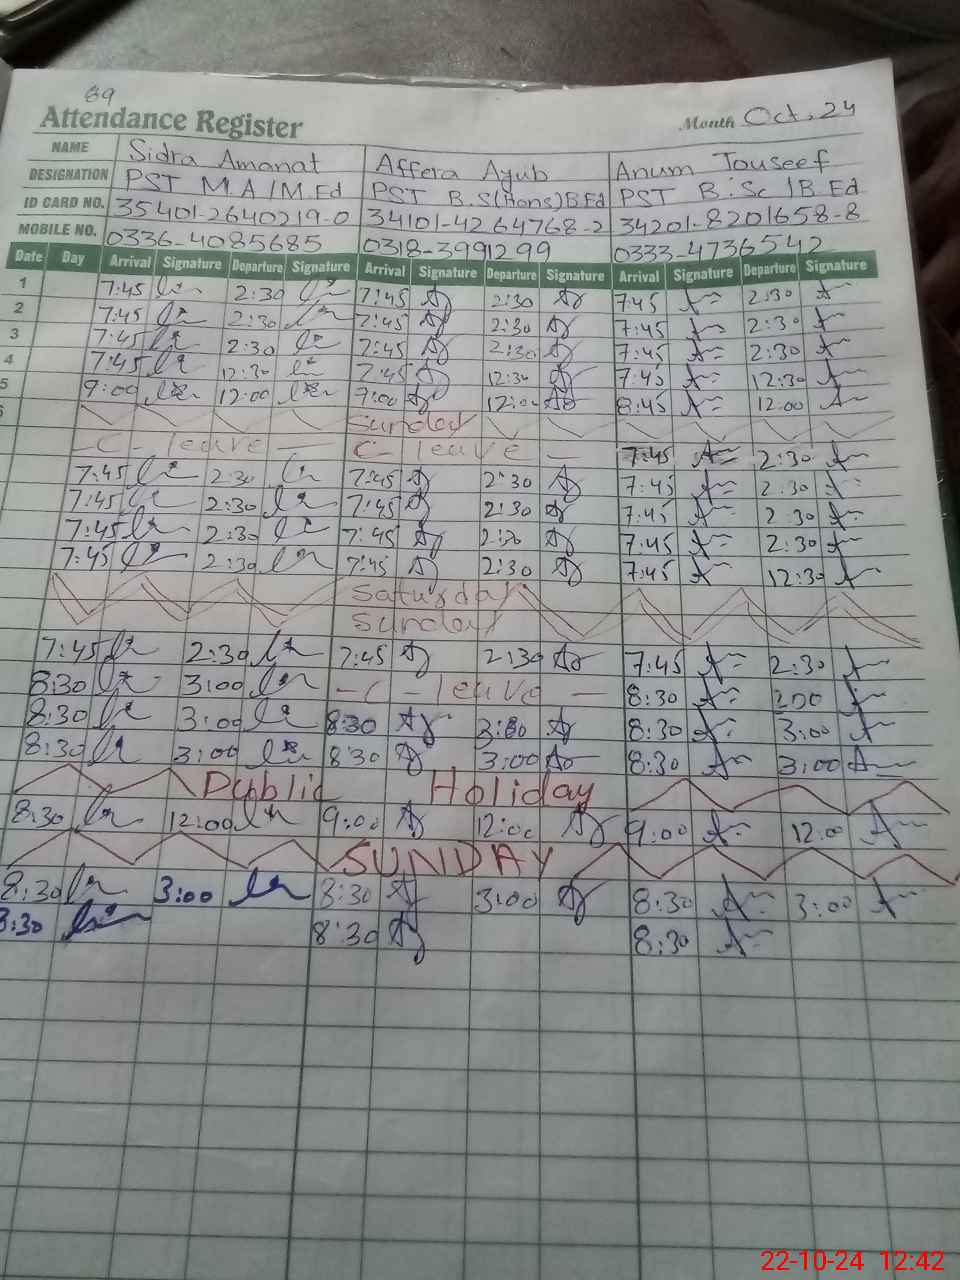 89
Attendance Register Month Oct, 24
NAME Sidra Amanat Affera Ayub Anum Touseef
DESIGNATION PST M.A/M.Ed PST B.S(Hons)B.Ed PST B.Sc/B.Ed
ID CARD NO. 35401-2640219-0 34101-4264768-2 34201-8201658-8
MOBILE NO. 0336-4085685 0318-3991299 0333-4736542
Date Day Arrival Signature Departure Signature Arrival Signature Departure Signature Arrival Signature Departure Signature
1 7:45 2:30 7:45 2:30 7:45 2:30
2 7:45 2:30 7:45 2:30 7:45 2:30
3 7:45 2:30 7:45 2:30 7:45 2:30
4 7:45 12:30 7:45 12:30 7:45 12:30
5 9:00 12:00 9:00 12:00 8:45 12:00
6 Sunday
-C-leave- C-leave- 7:45 2:30
7:45 2:30 7:45 2:30 7:45 2:30
7:45 2:30 7:45 2:30 7:45 2:30
7:45 2:30 7:45 2:30 7:45 2:30
7:45 2:30 7:45 2:30 7:45 12:30
Saturday
Sunday
7:45 2:30 7:45 2:30 7:45 2:30
8:30 3:00 -C-leave- 8:30
8:30 3:00 8:30 3:00 8:30 3:00
8:30 3:00 8:30 3:00 8:30 3:00
Public Holiday
8:30 12:00 9:00 12:00 9:00 12:00
SUNDAY
8:30 3:00 8:30 3:00 8:30 3:00
8:30 8:30 8:30
22-10-24 12:42